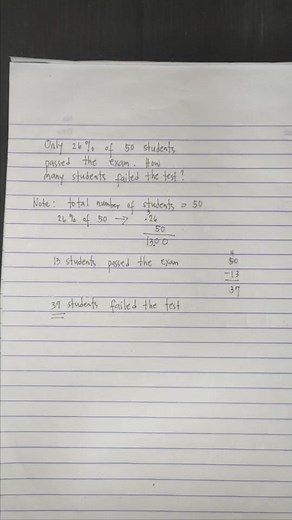 Only 26% of 50 students
passed the exam. How
many students failed the test?
Note: total number of students = 50
26% of 50 → .26
50
1300
13 students passed the exam
50
-13
37
37 students failed the test